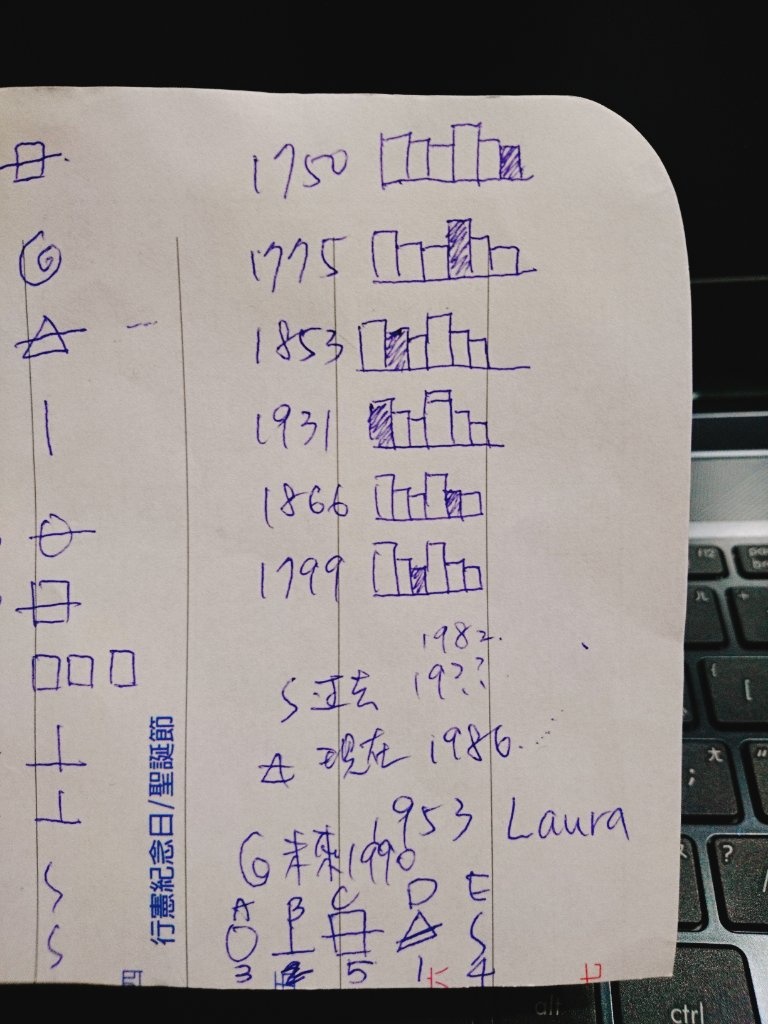 1750
1775
1853
1931
1866
1799
1982.
S 過去 19??
現在 1986.
1953 Laura
未來1990
A B C D E
S
3 5 1 4
行憲紀念日/聖誕節
S
S
F12
?
/
alt
ctrl